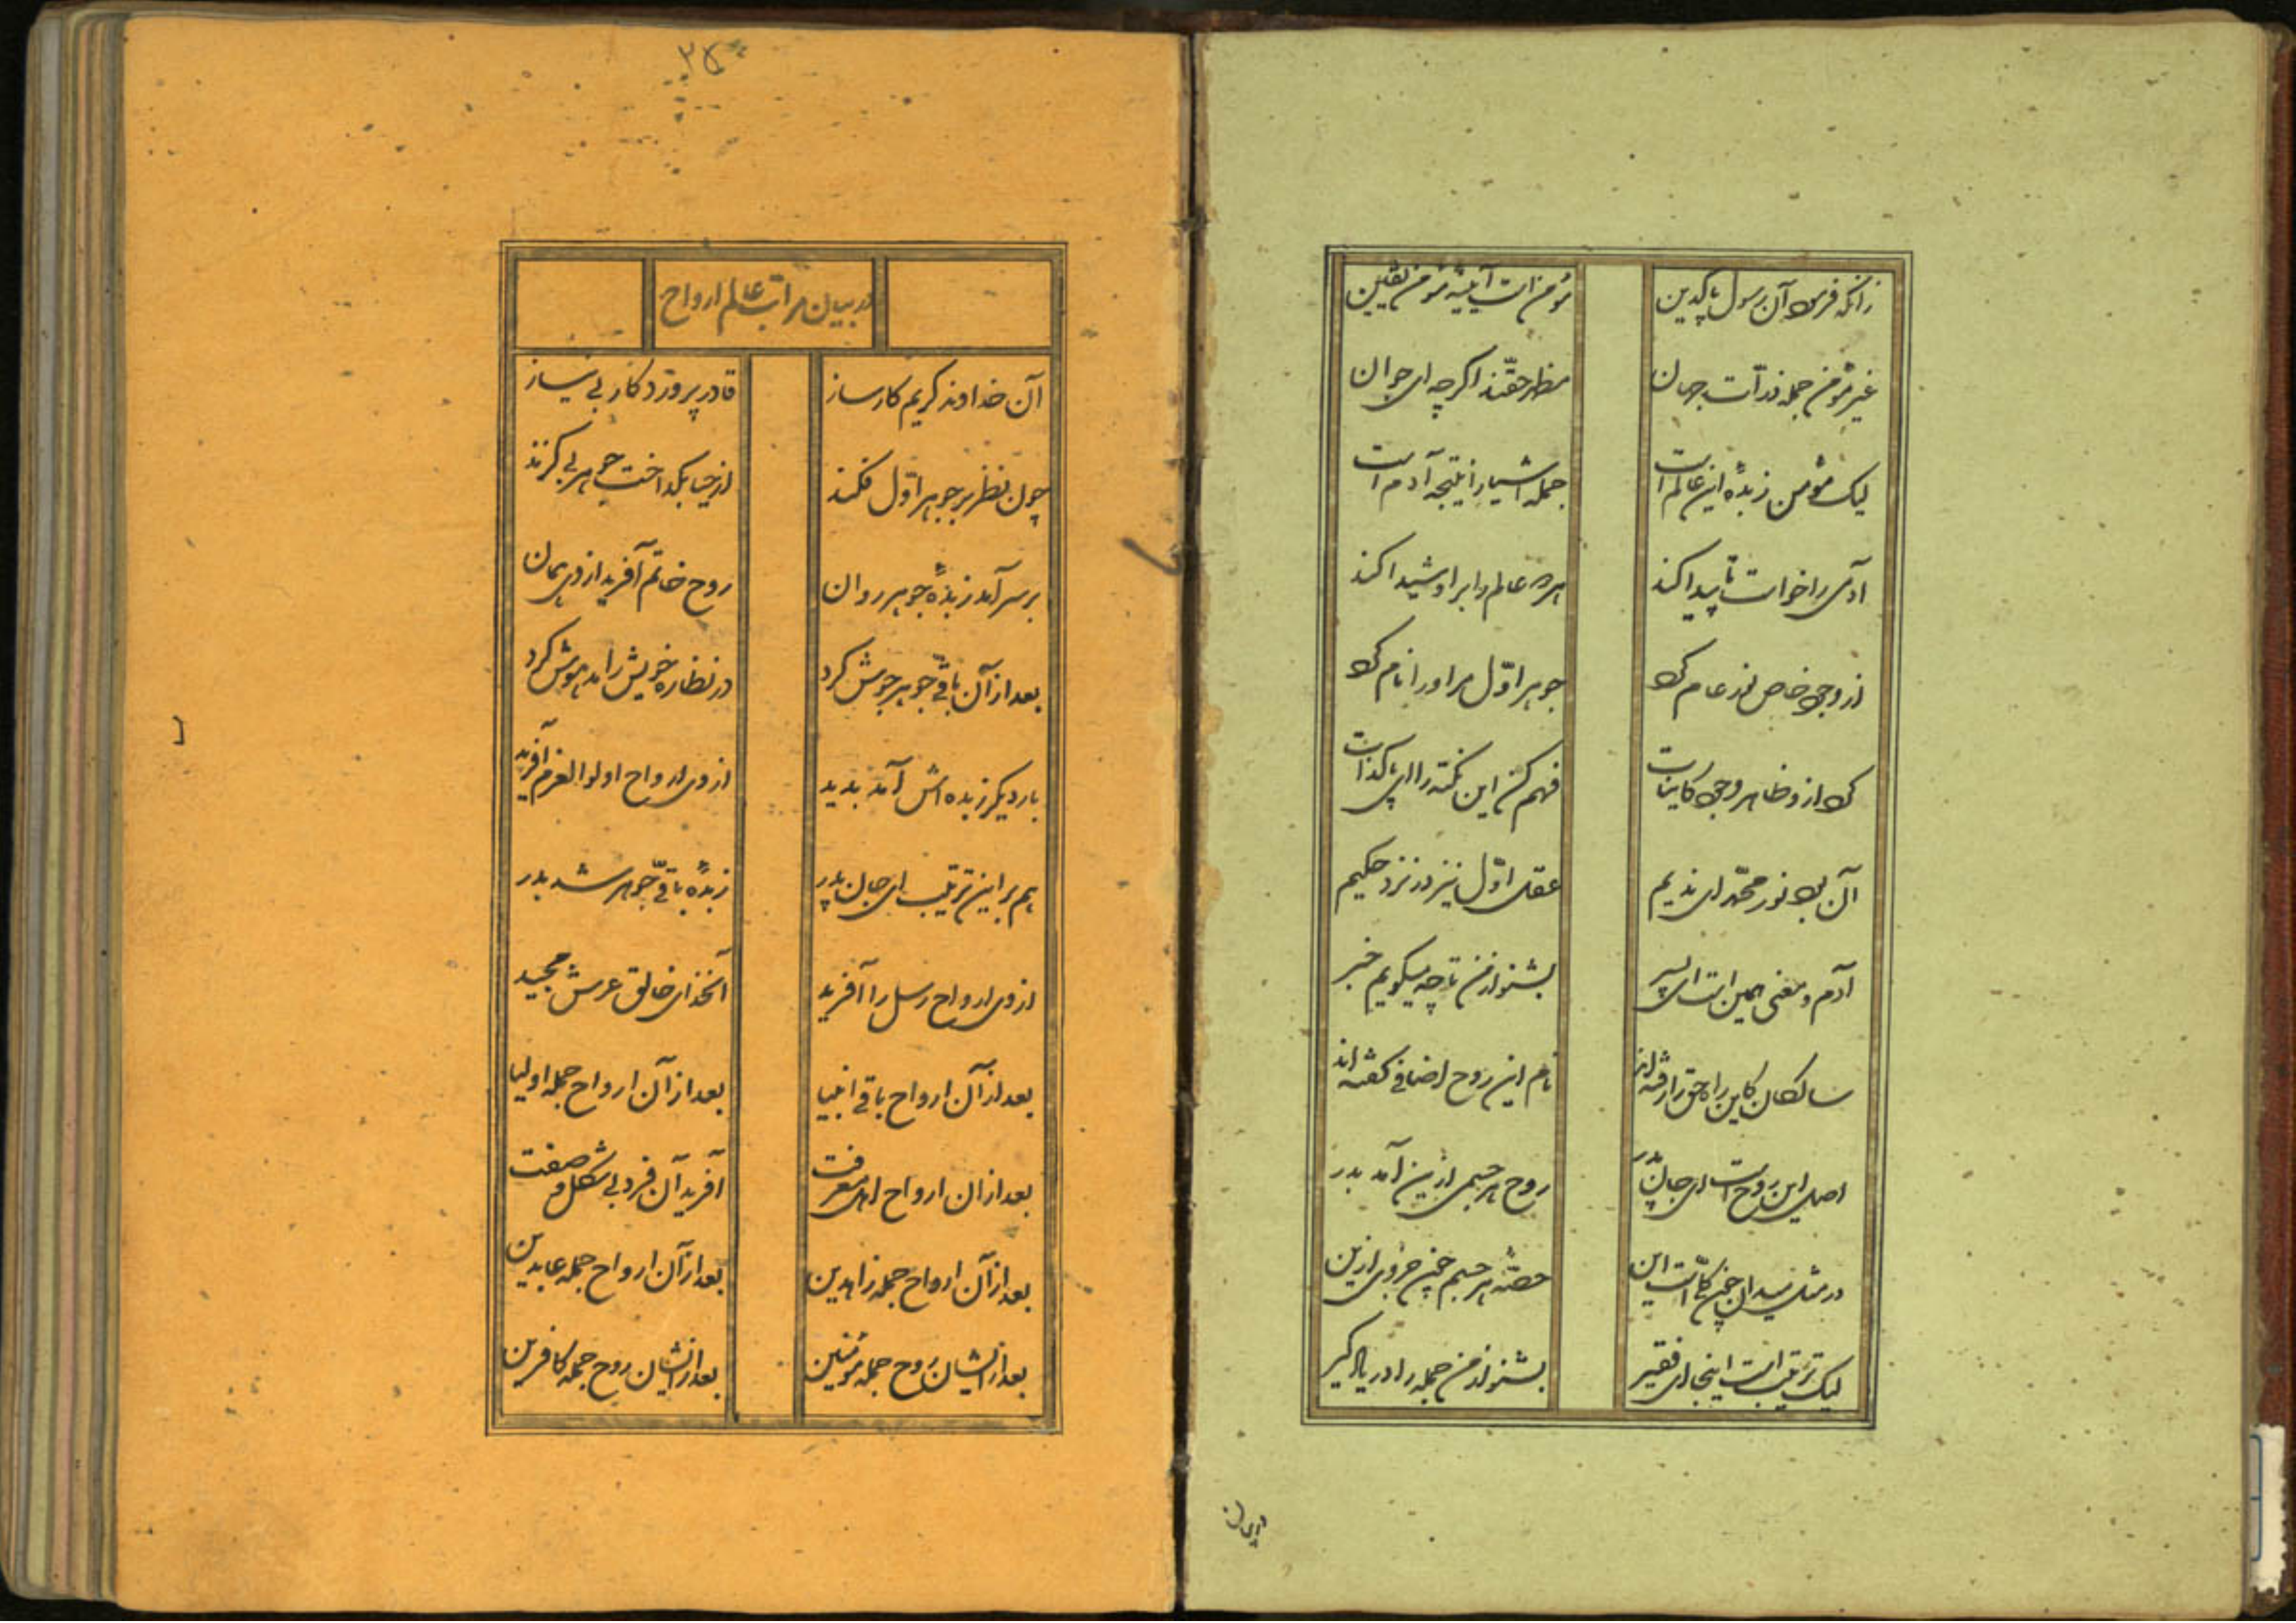 زانکه فرمود آن رسول پاکدین
مؤمن است آیینهٔ مؤمن یقین
غیر مؤمن جمله ذرات جهان
مظهر حقند اگرچه ای جوان
لیک مؤمن زبدهٔ این عالم است
جمله اشیا را نتیجه آدم است
آدمی را خواست تا پیدا کند
هر دو عالم را برو شیدا کند
از وجود خاص نور عام کرد
جوهر اول مر او را نام کرد
کرد ازو ظاهر وجود کاینات
فهم کن این نکته را ای پاکذات
آن بود نور محمد ای ندیم
عقل اول نیز در نزد حکیم
آدم و معنی همین است ای پسر
بشنو از من تا چه میگویم خبر
سالکان کاین راه حق را رفته‌اند
نام این روح اضافی گفته‌اند
اصل این روح است ای جان پدر
روح هر جسمی ازین آمد بدر
در مثل میدان چنین کلست این
حصهٔ هر جسم چون جزوی ازین
لیک ترتیب است اینجا ای فقیر
بشنو از من جمله را در یاد گیر
در بیان
در بیان مراتب عالم ارواح
آن خداوند کریم کارساز
قادر پروردکار بی نیاز
چون نظر بر جوهر اول فکند
از حیا بگداخت جوهر بی گزند
بر سر آمد زبدهٔ جوهر روان
روح خاتم آفرید از وی همان
بعد از آن باقی جوهر جوش کرد
در نظاره خویش را مدهوش کرد
بار دیگر زبده‌اش آمد پدید
از وی ارواح اولوالعزم آفرید
هم بر این ترتیب ای جان پدر
زبدهٔ باقی جوهر شد بدر
از وی ارواح رسل را آفرید
آنخدای خالق عرش مجید
بعد از آن ارواح باقی انبیا
بعد از آن ارواح جمله اولیا
بعد از آن ارواح اهل معرفت
آفرید آن فرد بی شکل و صفت
بعد از آن ارواح جمله زاهدین
بعد از آن ارواح جمله عابدین
بعد ازیشان روح جمله مؤمنین
بعد ازیشان روح جمله کافرین